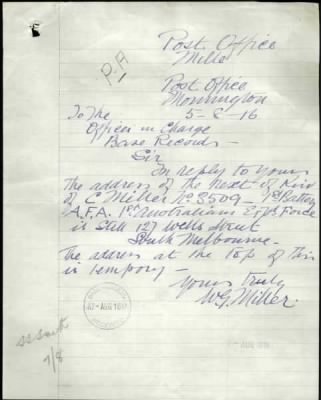 P.A
Post Office
Mills
Post Office
Mornington
5-8-16
To The
Officer in Charge
Base Records-
Sir
In reply to Yours
the address of the Next of Kin
of C Miller No 3509 - 1st Battery
A.F.A. 1st Australians Ex Force
is Still 127 Wells Street
South Melbourne-
The address at the top of this
is temporary -
Yours Truly
W.G. Miller.
AUG 191
7/8
AUG 1916